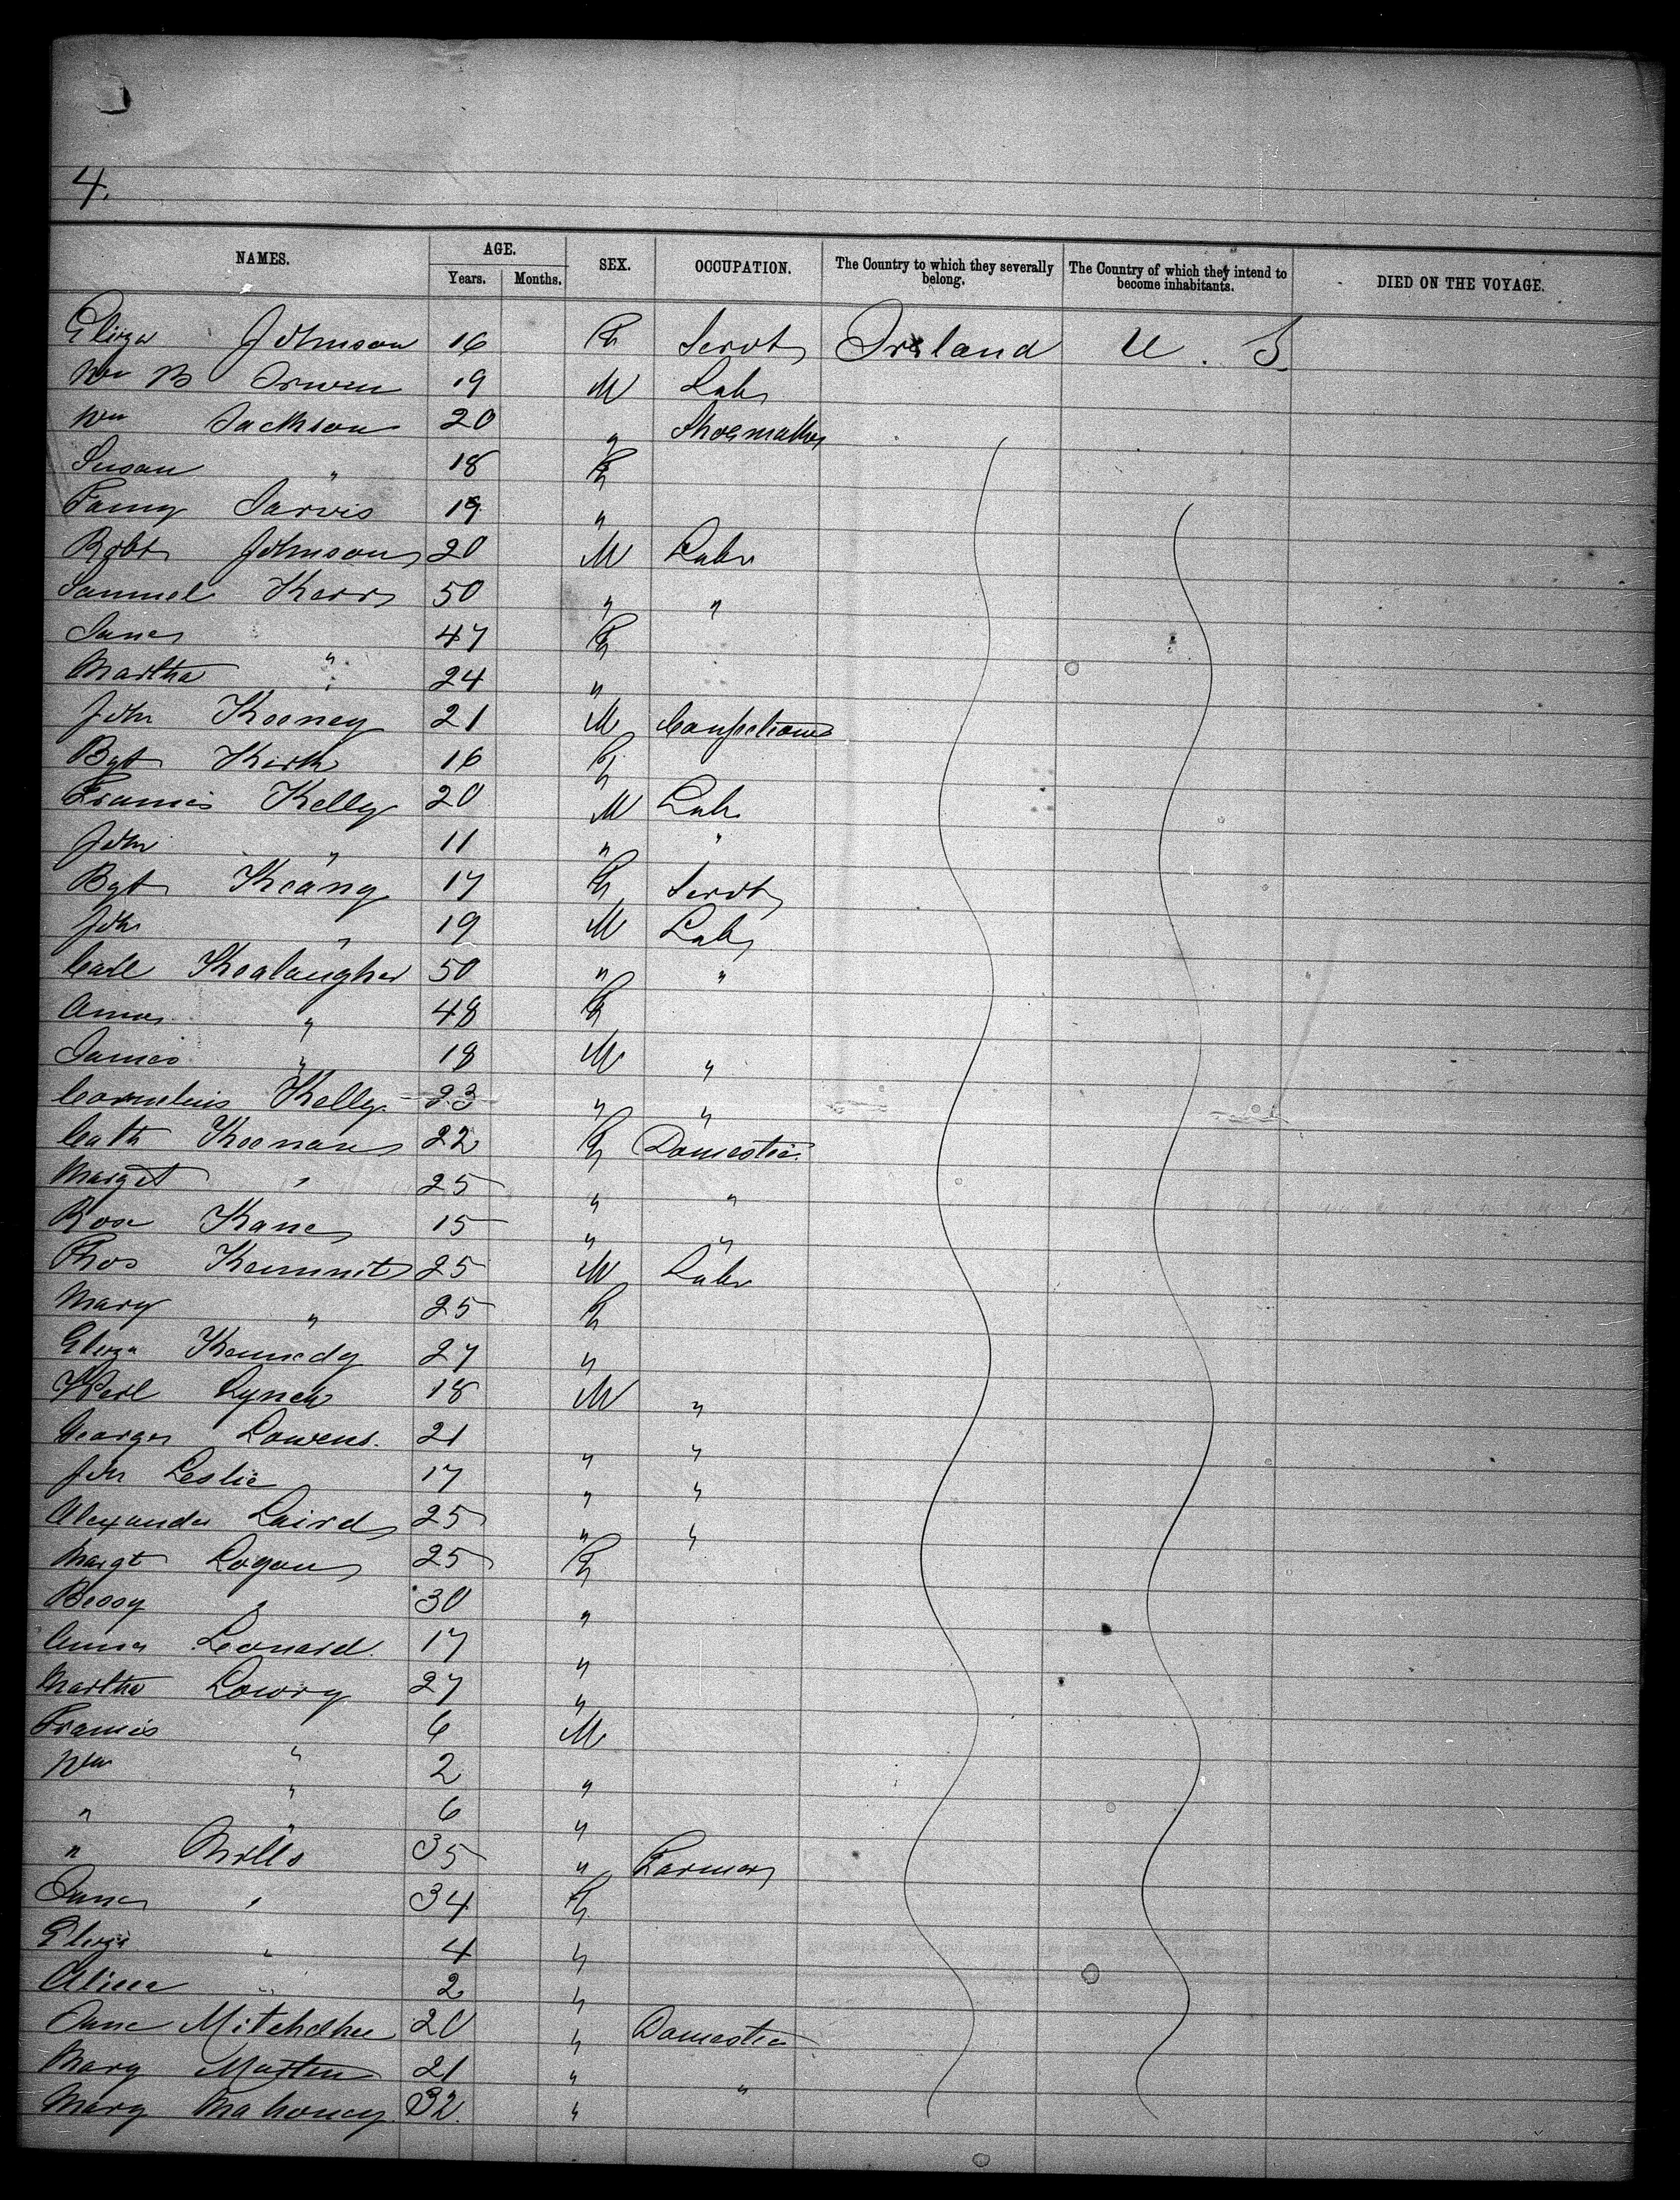 4.
NAMES. AGE. SEX. OCCUPATION. The Country to which they severally belong. The Country of which they intend to become inhabitants. DIED ON THE VOYAGE.
Years. Months.
Eliza Johnson 16 F Servt Ireland U. S.
Wm B Irwin 19 M Labr
Wm Jackson 20 " Shoemaker
Susan " 18 F
Fanny Jarvis 19 "
Robt Johnson 20 M Labr
Samuel Kerr 50 " "
Jane " 47 F
Martha " 24 "
John Keeney 21 M Confectioner
Bgt Kirk 16 F
Francis Kelly 20 M Labr
John " 11 " "
Bgt Keany 17 F Servt
John " 19 M Labr
Kealaugher 50 " "
Anna " 48 F
James " 18 M "
Cornelius Kelly 23 " "
Cath Keenan 22 F Domestic
Margt " 25 " "
Rose Kane 15 " "
Thos 25 M Labr
Mary " 25 F
Eliza Kennedy 27 "
Lynch 18 M "
George Lowens. 21 " "
John Leslie 17 " "
Alexander Laird 25 " "
Margt Logan 25 F
Bessy " 30 "
Anna Leonard. 17 "
Martha Lowry 27 "
Francis " 6 M
Wm " 2 "
" " 6 "
" Mills 35 " Farmer
Jane " 34 F
Eliza " 4 "
Alicea " 2 "
Jane 20 " Domestic
Mary Martin 21 " "
Mary Mahoney 32. "